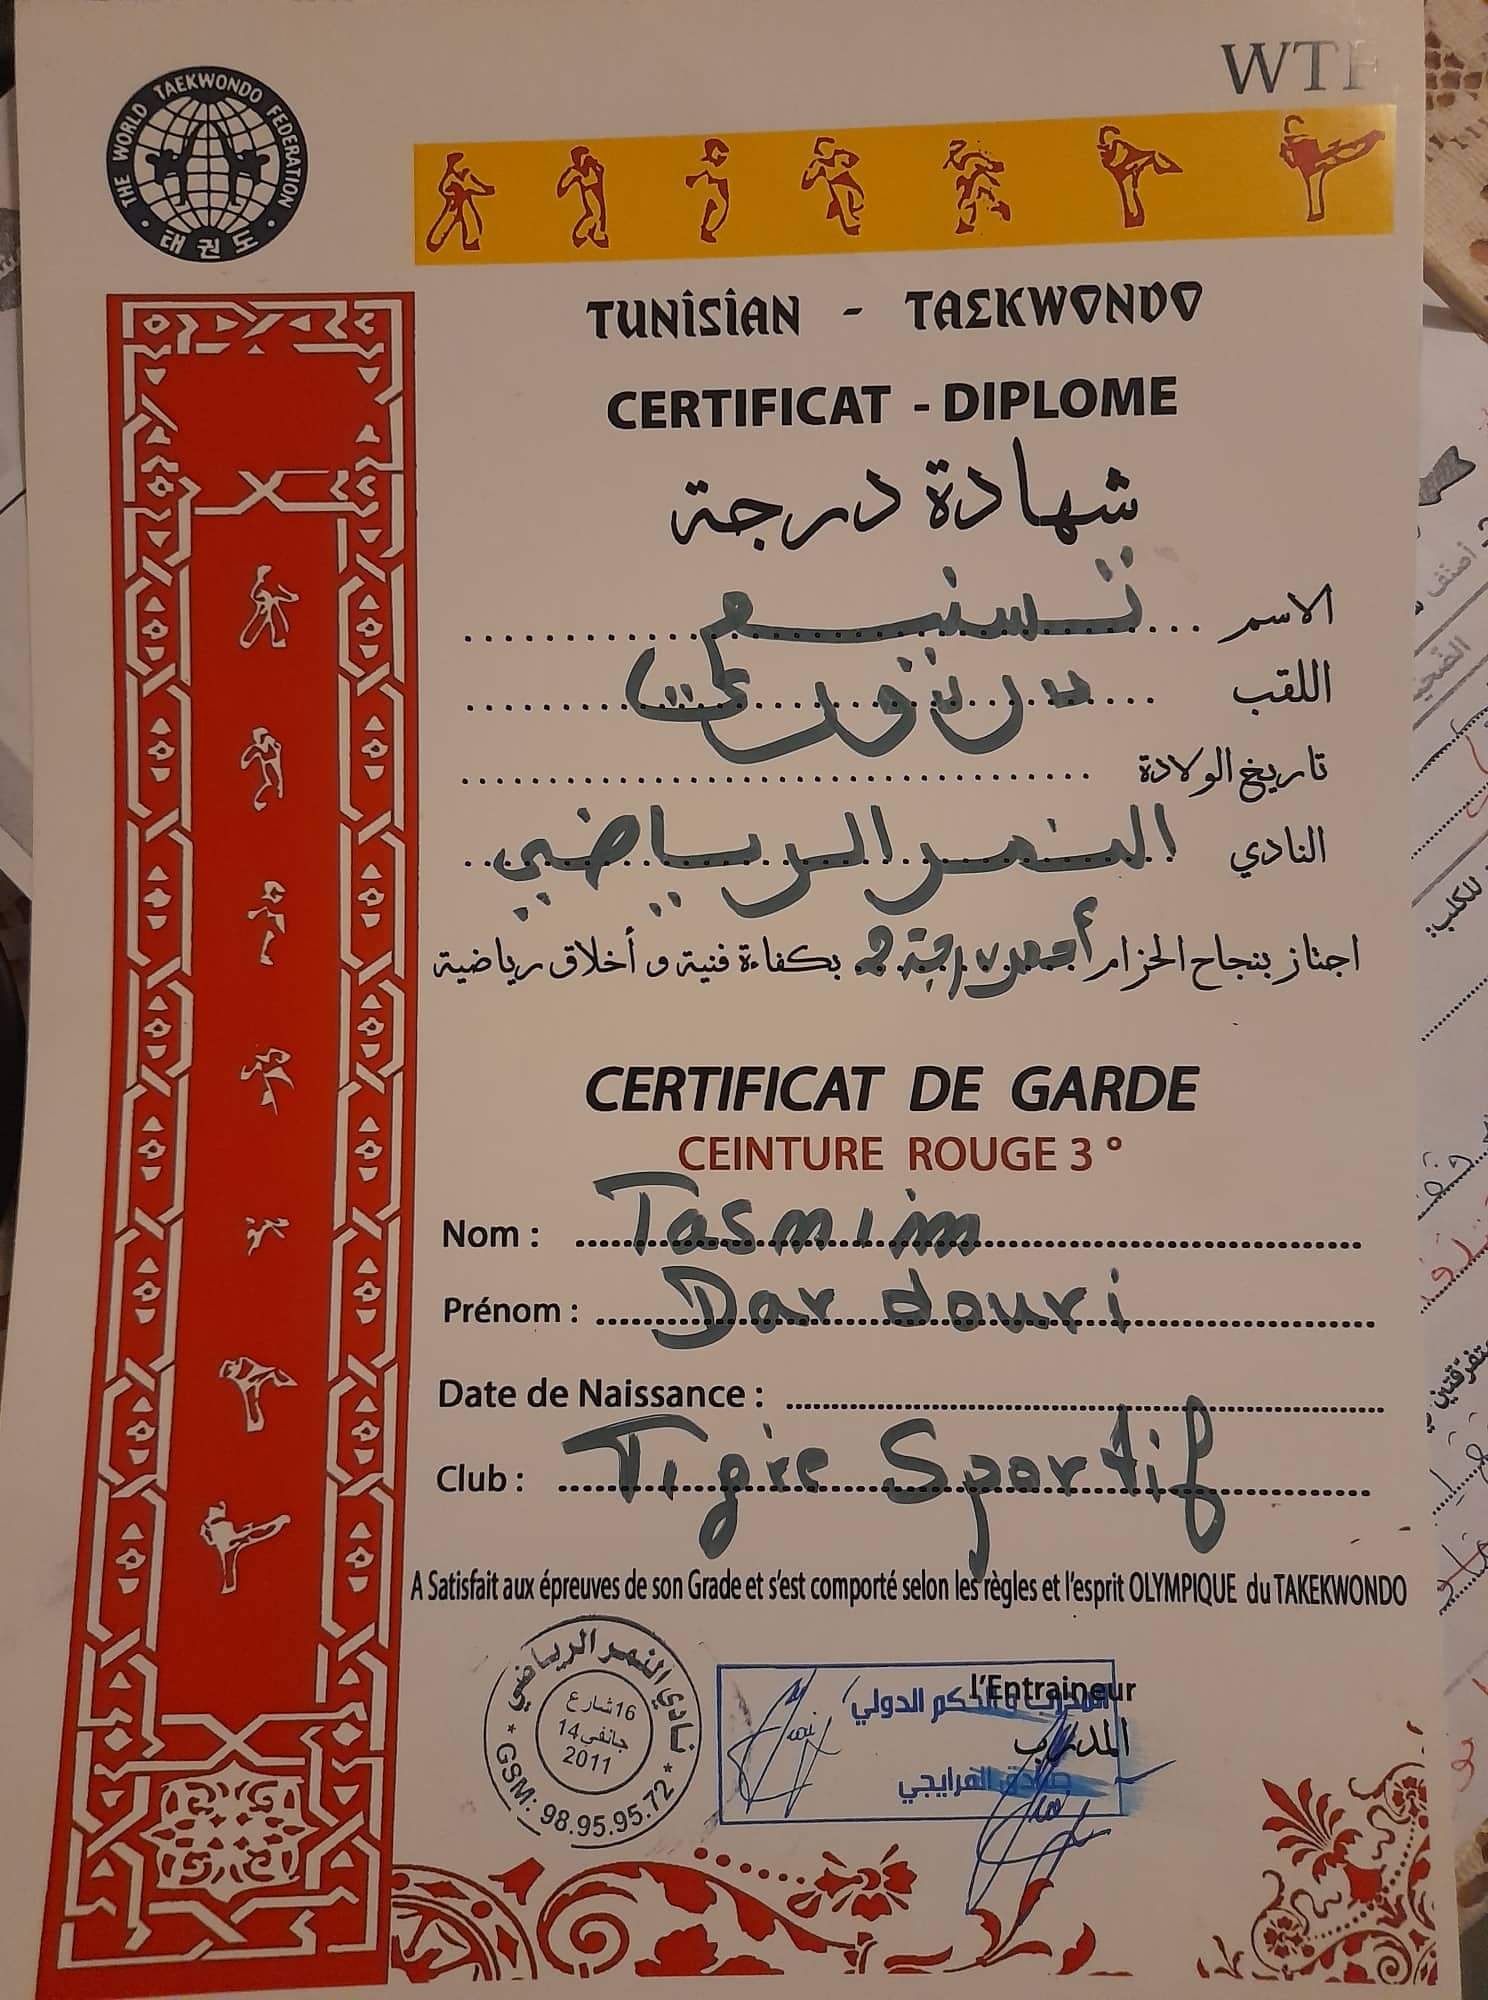 WTF
THE WORLD TAEKWONDO FEDERATION
태권도
TUNISIAN - TAEKWONDO
CERTIFICAT - DIPLOME
شهادة درجة
الاسم تسنيم
اللقب دردوري
تاريخ الولادة
النادي النمر الرياضي
اجتاز بنجاح الحزام أحمر درجة 2 بكفاءة فنية و أخلاق رياضية
CERTIFICAT DE GARDE
CEINTURE ROUGE 3 °
Nom : Tasmim
Prénom : Dardouri
Date de Naissance :
Club : Tigre Sportif
A Satisfait aux épreuves de son Grade et s'est comporté selon les règles et l'esprit OLYMPIQUE du TAKEKWONDO
نادي النمر الرياضي
16 شارع
14 جانفي
2011
* GSM: 98.95.95.72 *
l'Entraineur
المدرب و الحكم الدولي
المدرب